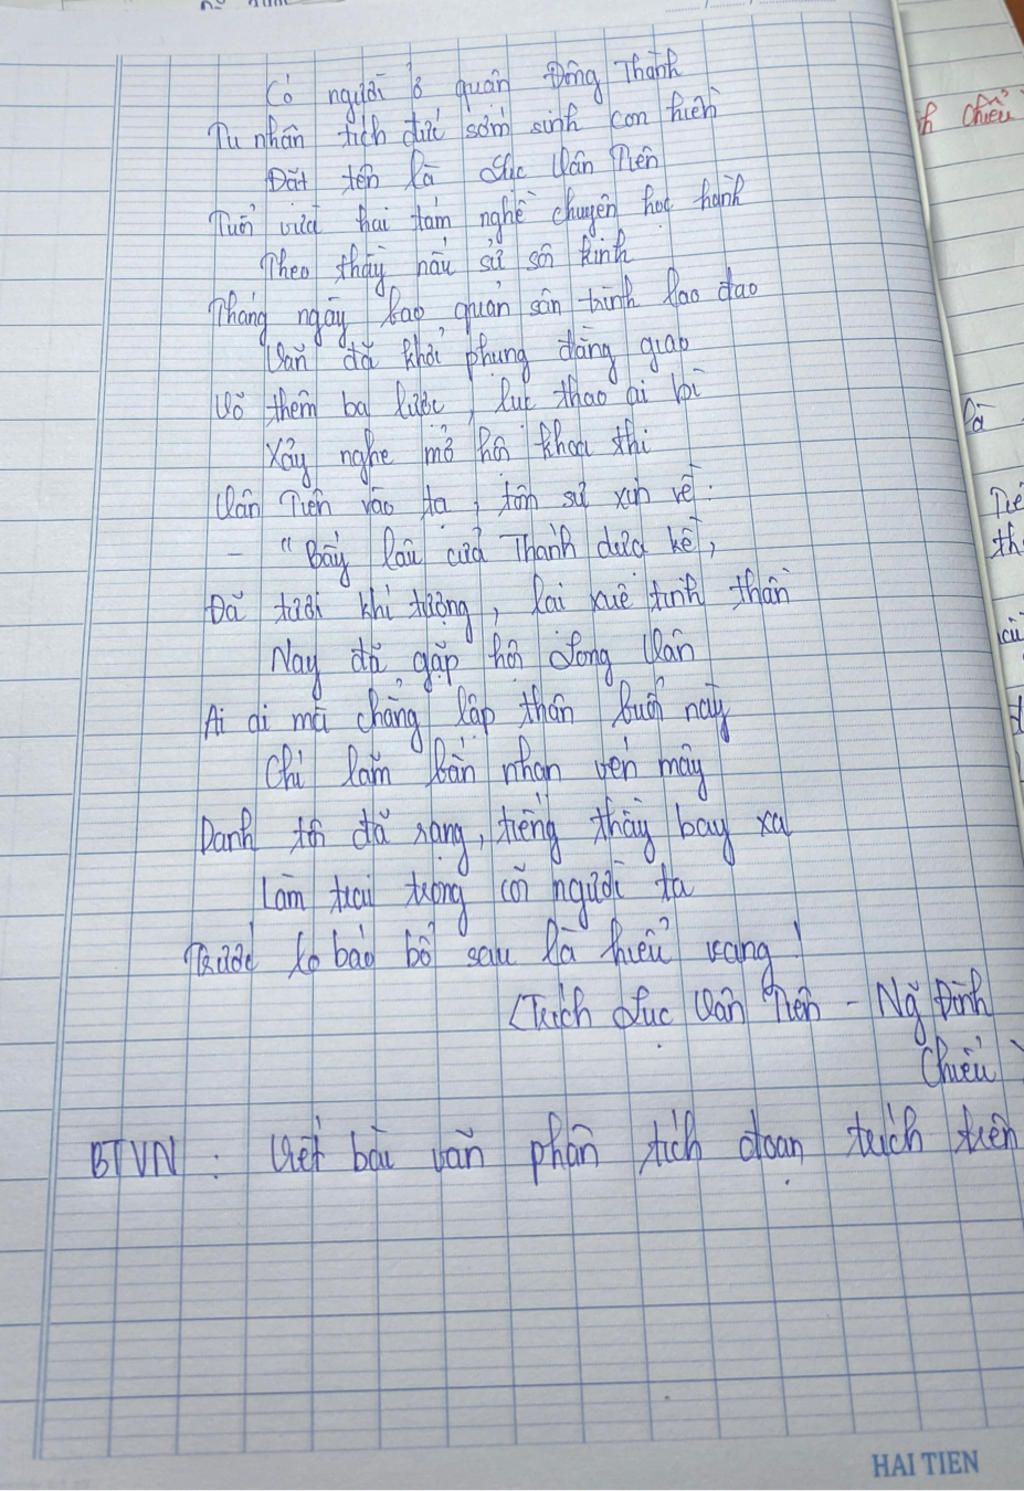 Có người ở quận Đông Thành
Tu nhân tích đức sớm sinh con hiền
Đặt tên là Lục Vân Tiên
Tuổi vừa hai tám nghề chuyên học hành
Theo thầy nấu sử sôi kinh
Tháng ngày bao quản sân trình lao đao
Văn đã khởi phụng đằng giao
Võ thêm ba lược, lục thao ai bì
Xảy nghe mở hội khoa thi
Vân Tiên vào tạ, tôn sư xin về:
- "Bấy lâu cửa Thánh dựa kề,
Đã tươi khí tượng, lại xuê tinh thần
Nay đà gặp hội Long Vân
Ai đi mà chẳng lập thân buổi này
Chí lăm bắn nhạn ven mây
Danh tôi đã rạng, tiếng thầy bay xa
Làm trai trong cõi người ta
Trước lo báo bổ sau là hiển vang!
(Trích Lục Vân Tiên - Ng Đình
Chiểu)
BTVN: Viết bài văn phân tích đoạn trích trên
h Chiểu
là
Tiê
th
cù
HAI TIEN